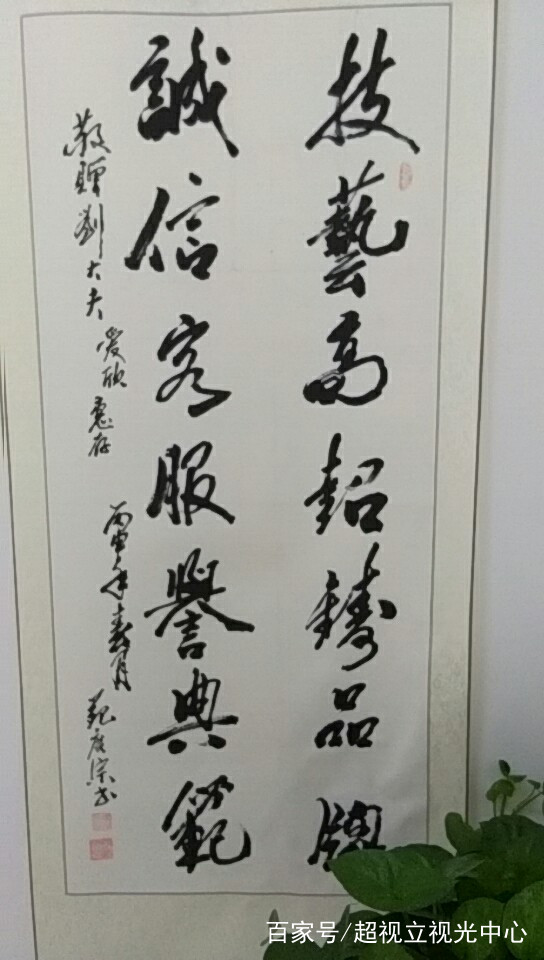 技藝高超鑄品牌
誠信客服譽典範
敬贈劉大夫 愛欣 惠存
丙申年春月
百家号/超视立视光中心